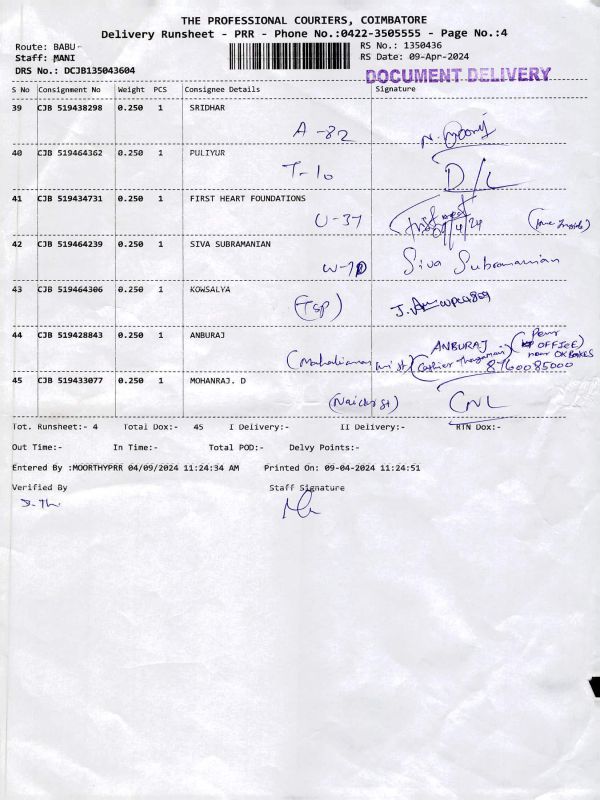 THE PROFESSIONAL COURIERS, COIMBATORE
Delivery Runsheet - PRR - Phone No.:0422-3505555 - Page No.:4
Route: BABU- RS No.: 1350436
Staff: MANI RS Date: 09-Apr-2024
DRS No.: DCJB135043604 DOCUMENT DELIVERY
S No Consignment No Weight PCS Consignee Details Signature
39 CJB 519438298 0.250 1 SRIDHAR
A-82
40 CJB 519464362 0.250 1 PULIYUR
T-10 D/L
41 CJB 519434731 0.250 1 FIRST HEART FOUNDATIONS
U-37
42 CJB 519464239 0.250 1 SIVA SUBRAMANIAN
Siva Subramanian
43 CJB 519464306 0.250 1 KOWSALYA
(TSP)
44 CJB 519428843 0.250 1 ANBURAJ
ANBURAJ OFFICE)
near OK BAKES
(Cashier 8760085000
45 CJB 519433077 0.250 1 MOHANRAJ. D
CNL
Tot. Runsheet:- 4 Total Dox:- 45 I Delivery:- II Delivery:- RTN Dox:-
Out Time:- In Time:- Total POD:- Delvy Points:-
Entered By :MOORTHYPRR 04/09/2024 11:24:34 AM Printed On: 09-04-2024 11:24:51
Verified By Staff Signature